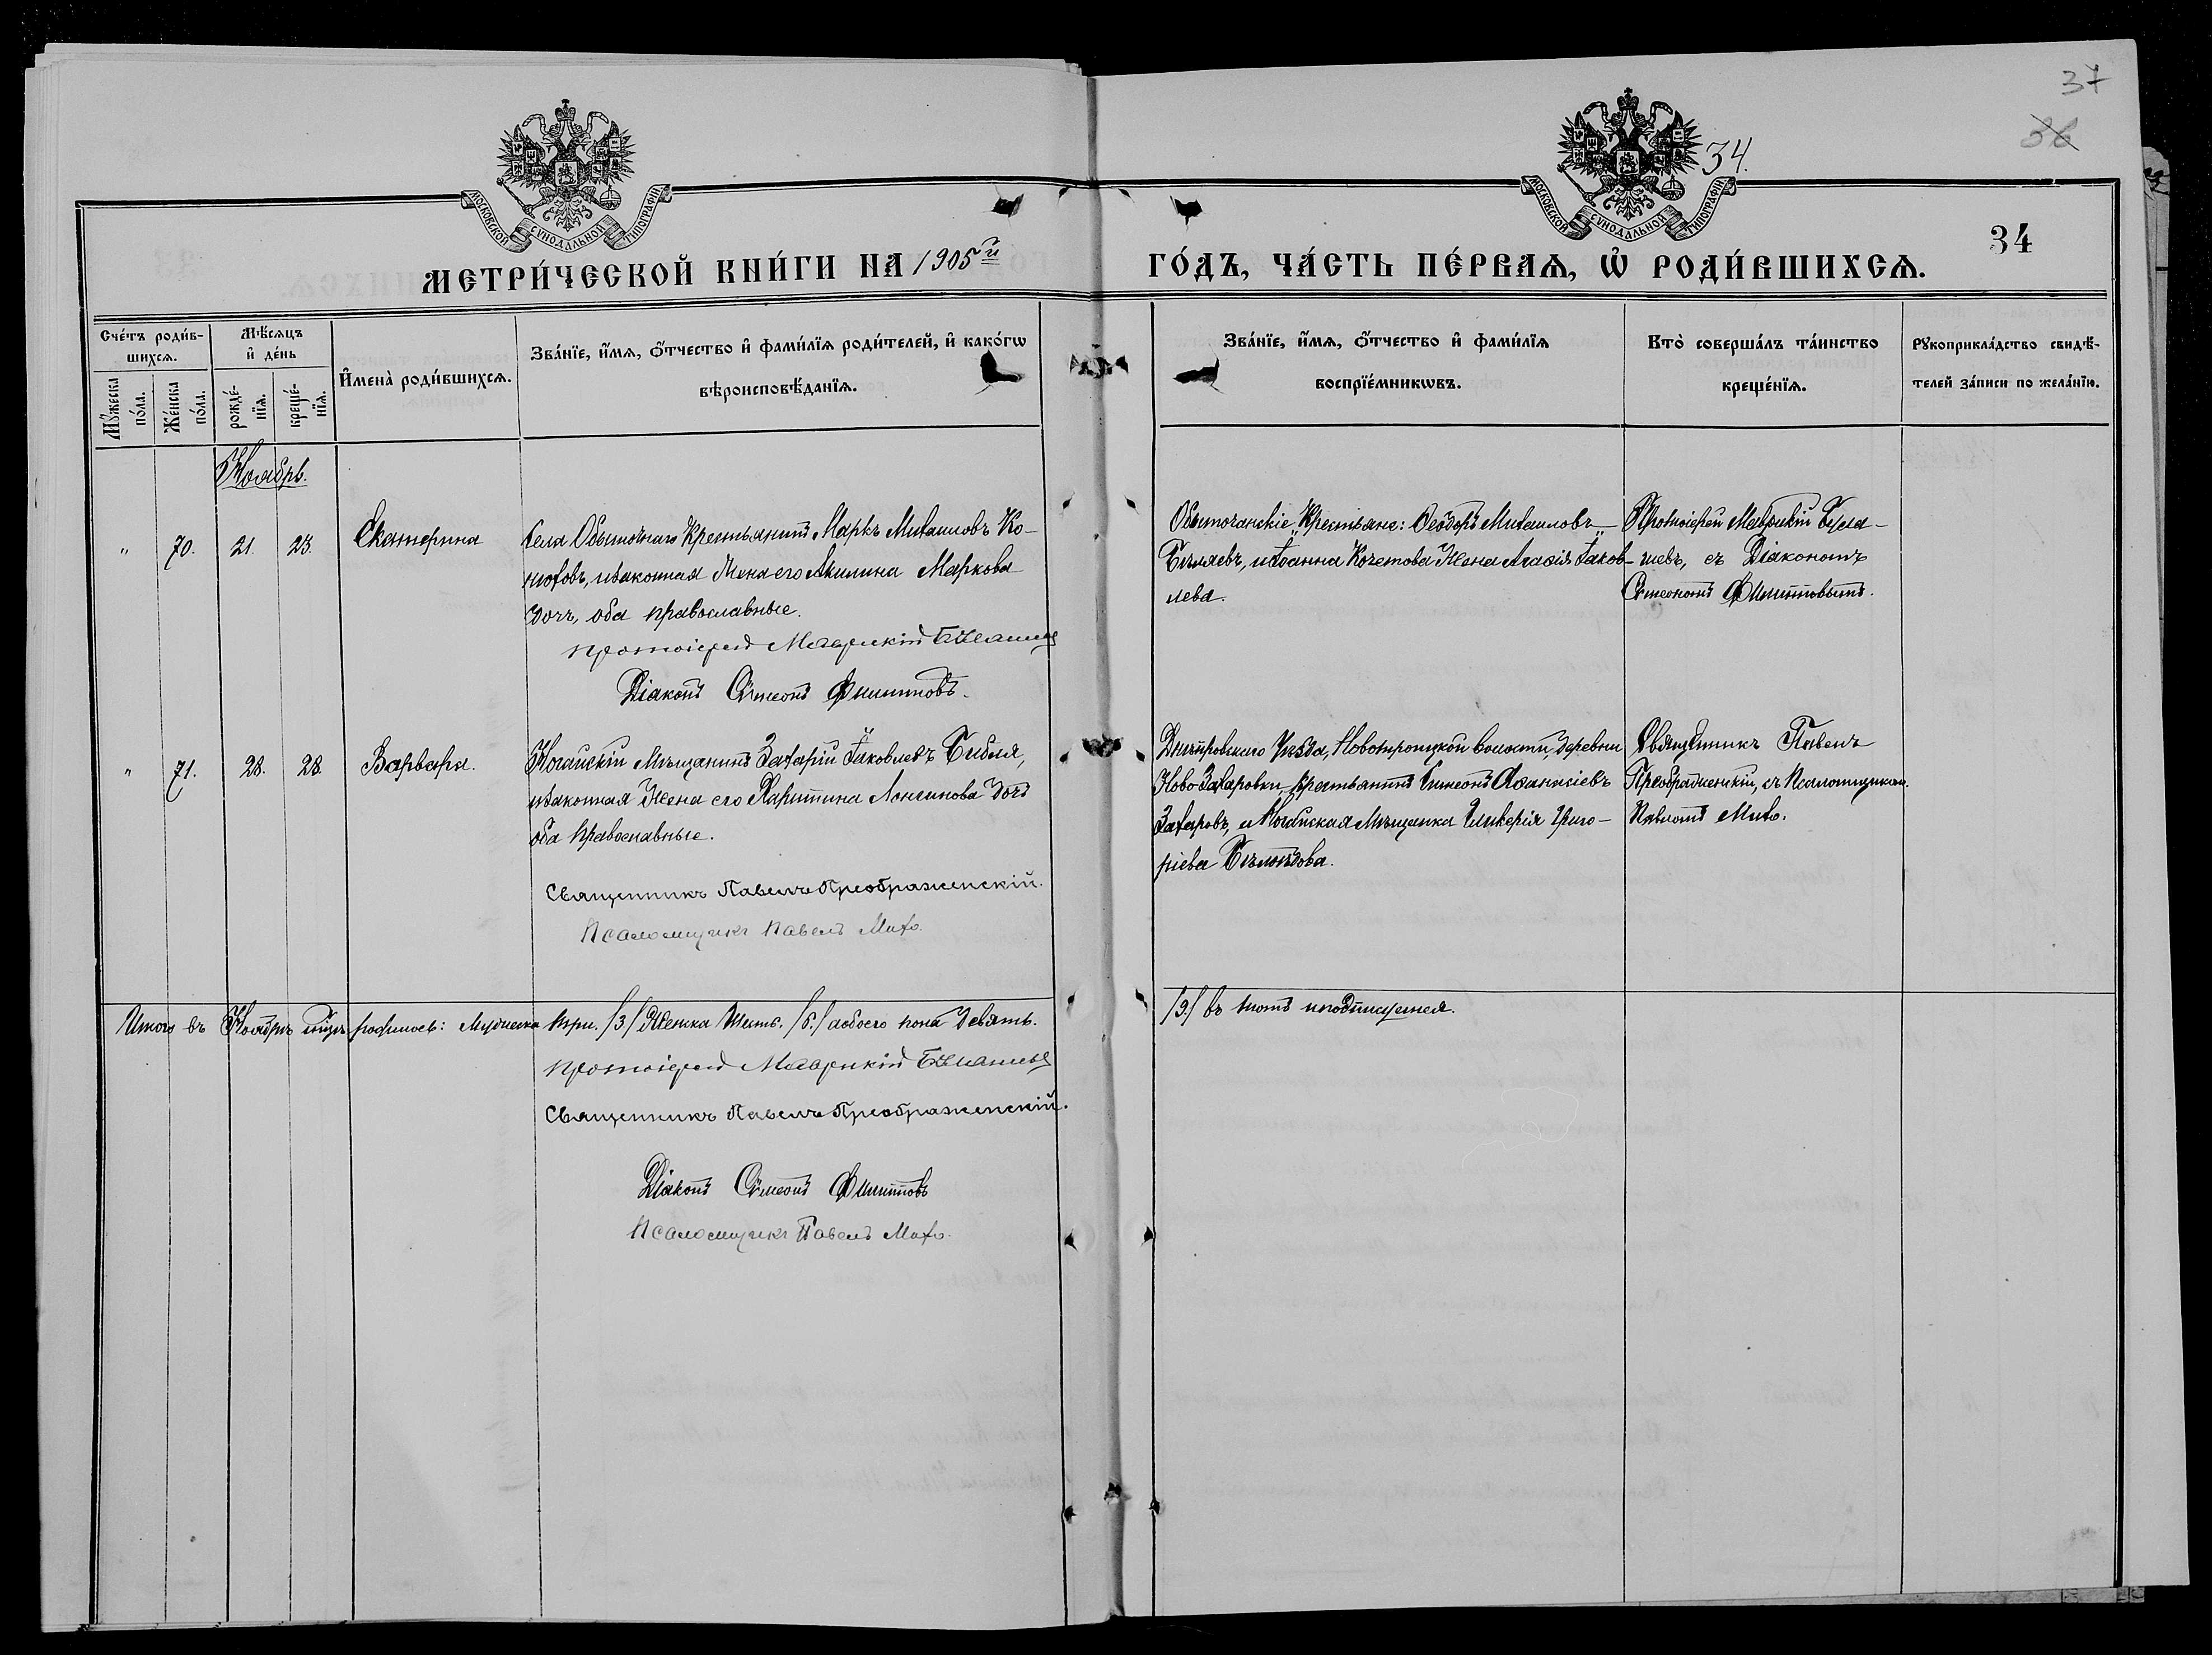 37
36
34.
34
МОСКОВСКОЙ СУНОДАЛЬНОЙ ТИПОГРАФІИ
МОСКОВСКОЙ СУНОДАЛЬНОЙ ТИПОГРАФІИ
МЕТРИ́ЧЕСКОЙ КНИ́ГИ НА 1905й
ГО́ДЪ, ЧА́СТЬ ПЕ́РВАѦ, Ѡ҆ РОДИ́ВШИХСѦ.
Сче́тъ роди́в-
шихсѧ.
Мꙋ́жеска по́ла.
Же́нска по́ла.
Мѣ́сѧцъ
и҆ де́нь
рожде́-
нїѧ.
креще́-
нїѧ.
И҆мена̀ роди́вшихсѧ.
Зва́нїе, и҆́мѧ, ѻ҆́тчество и҆ фами́лїѧ роди́телей, и҆ како́гѡ
вѣроисповѣ́данїѧ.
Зва́нїе, и҆́мѧ, ѻ҆́тчество и҆ фами́лїѧ
воспрїе́мникѡвъ.
Кто̀ соверша́лъ та́инство
креще́нїѧ.
Рꙋкоприкла́дство свидѣ́-
телей за́писи по жела́нїю.
Ноябрь.
" 70. 21. 23. Екатерина
Села Обыточнаго Крестьянинъ Маркъ Михаиловъ Ко-
нюховъ, изаконная Жена его Акилина Маркова
дочь, оба православные.
протоіерей Маврикій
Діаконъ Сѵмеонъ Филипповъ.
Обыточанскіе Крестьяне: Ѳеодоръ Михаиловъ
Бѣляевъ, и Іоанна Кочетова Жена Агаѳія Іаков-
лева.
Протоіерей Маврикій
шевъ, съ Діакономъ
Сѵмеономъ Филипповымъ.
" 71. 28. 28. Варвара.
Ногайскій Мѣщанинъ Захарій Іаковлевъ Библя,
изаконная Жена его Харитина Лонгинова дочь
оба Православные.
Священникъ Павелъ Преображенскій.
Псаломщикъ Павелъ Михо.
Днѣпровскаго Уѣзда, Новотроицкой волости, деревни
Ново Захаровки, Крестьянинъ Симеонъ Аѳанасіевъ
Захаровъ, и Ногайская Мѣщанка Гликерія Григо-
ріева
Священникъ Павелъ
Преображенскій, съ Псаломщикомъ
Павломъ Михо.
Итого въ Ноябрѣ мѣсяцѣ родилось: Мужеска три. /3/ Женска Шесть. /6./ а обоего пола Девять.
/9./ въ чемъ и подпишемся.
протоіерей Маврикій
Священникъ Павелъ Преображенскій.
Діаконъ Сѵмеонъ Филипповъ
Псаломщикъ Павелъ Михо.